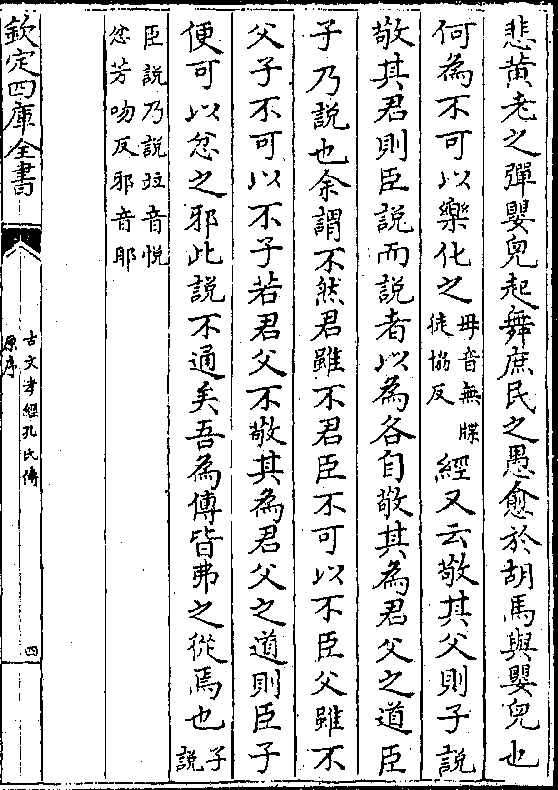 悲黄老之彈嬰兒起舞庶民之愚愈於胡馬與嬰兒也
何為不可以樂化之毋音無牒
徒協反經又云敬其父則子說
敬其君則臣說而說者以為各自敬其為君父之道臣
子乃說也余謂不然君雖不君臣不可以不臣父雖不
父子不可以不子若君父不敬其為君父之道則臣子
便可以忿之邪此說不通矣吾為傳皆弗之從焉也子
說
臣說乃說竝音悅
忿芳吻反邪音耶
欽定四庫全書
古文孝經孔氏傳
原序
四